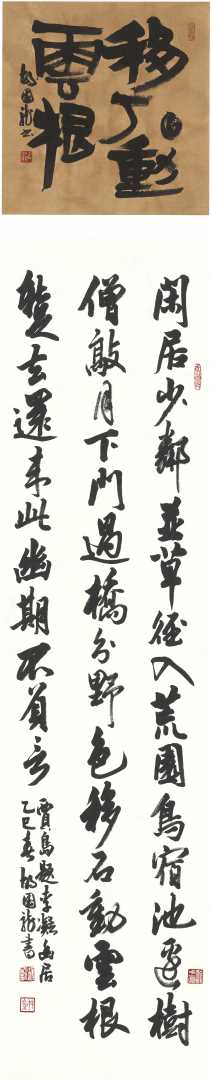 移石動
雲根
閑居少鄰並草徑入荒園鳥宿池邊樹
僧敲月下門過橋分野色移石動雲根
暫去還來此幽期不負言
賈島題李凝幽居
乙巳春 国龍書